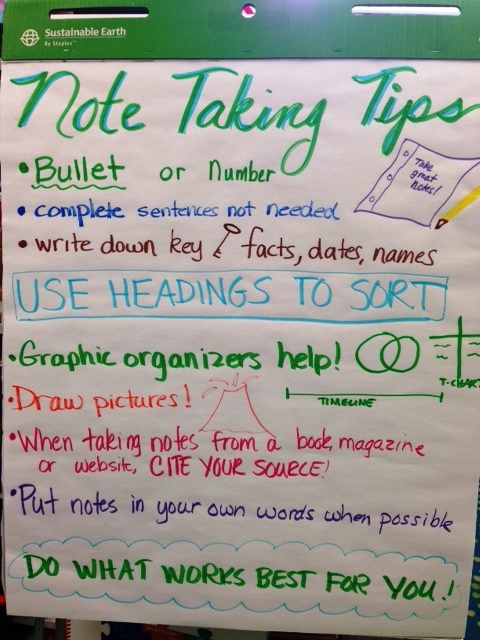 Sustainable Earth
By Staples
Note Taking Tips
• Bullet or Number
Take
great
notes!
• complete sentences not needed
• write down key facts, dates, names
USE HEADINGS TO SORT
• Graphic organizers help!
T-CHART
• Draw pictures!
TIMELINE
• When taking notes from a book, magazine
or website, CITE YOUR SOURCE!
• Put notes in your own words when possible
DO WHAT WORKS BEST FOR YOU!